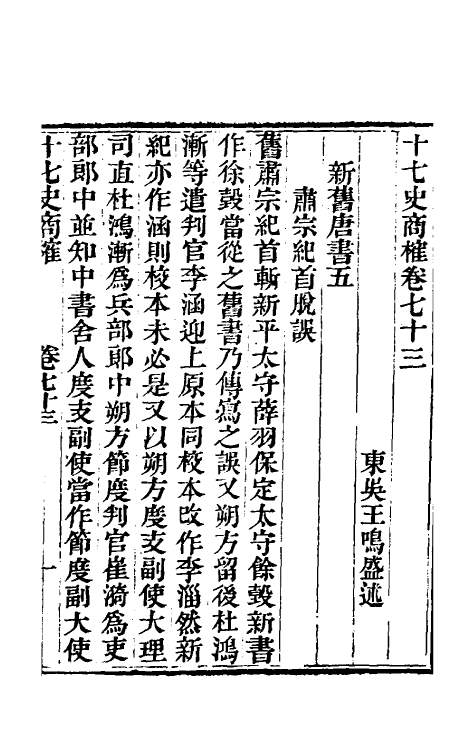 十七史商榷卷七十三
東吳王鳴盛述
新舊唐書五
肅宗紀首脫誤
舊肅宗紀首斬新平太守薛羽保定太守餘瑴新書
作徐瑴當從之舊書乃傳寫之誤又朔方留後杜鴻
漸等遣判官李涵迎上原本同校本改作李淄然新
紀亦作涵則校本未必是又以朔方度支副使大理
司直杜鴻漸爲兵部郎中朔方節度判官崔漪爲吏
部郎中並知中書舍人度支副使當作節度副大使
十七史商榷
卷七十三
一